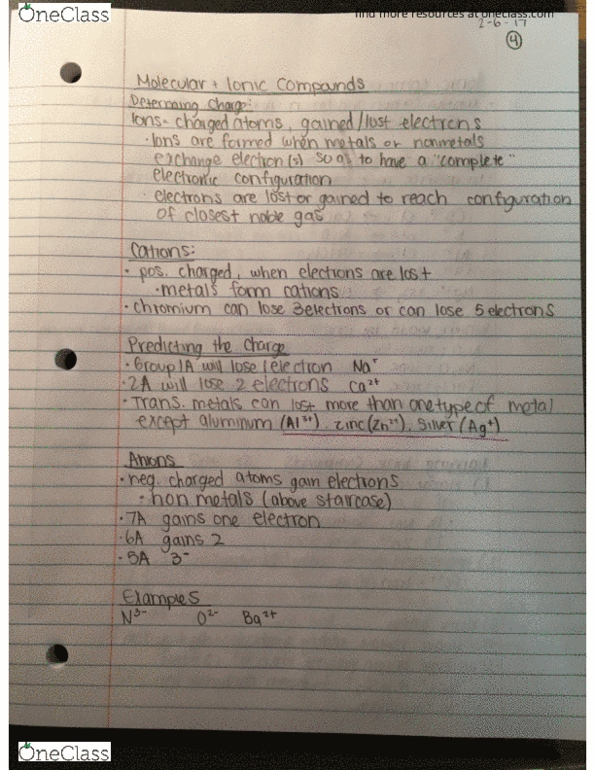 OneClass
find more resources at oneclass.com
2-6-17
4
Molecular + Ionic Compounds
Determing Charge:
Ions- charged atoms, gained/lost electrons
· Ions are formed when metals or nonmetals
exchange electron(s) so as to have a "complete"
electronic configuration
· electrons are lost or gained to reach configuration
of closest noble gas
Cations:
· pos. charged, when electrons are lost
· metals form cations
· chromium can lose 3 electrons or can lose 5 electrons
Predicting the Charge
· Group 1A will lose 1 electron Na⁺
· 2A will lose 2 electrons Ca²⁺
· Trans. metals can lost more than one type of metal
except aluminum (Al³⁺), zinc (Zn²⁺), Silver (Ag⁺)
Anions
· neg. charged atoms gain electrons
· non metals (above staircase)
· 7A gains one electron
· 6A gains 2
· 5A 3⁻
Examples
N³⁻ O²⁻ Ba²⁺
OneClass